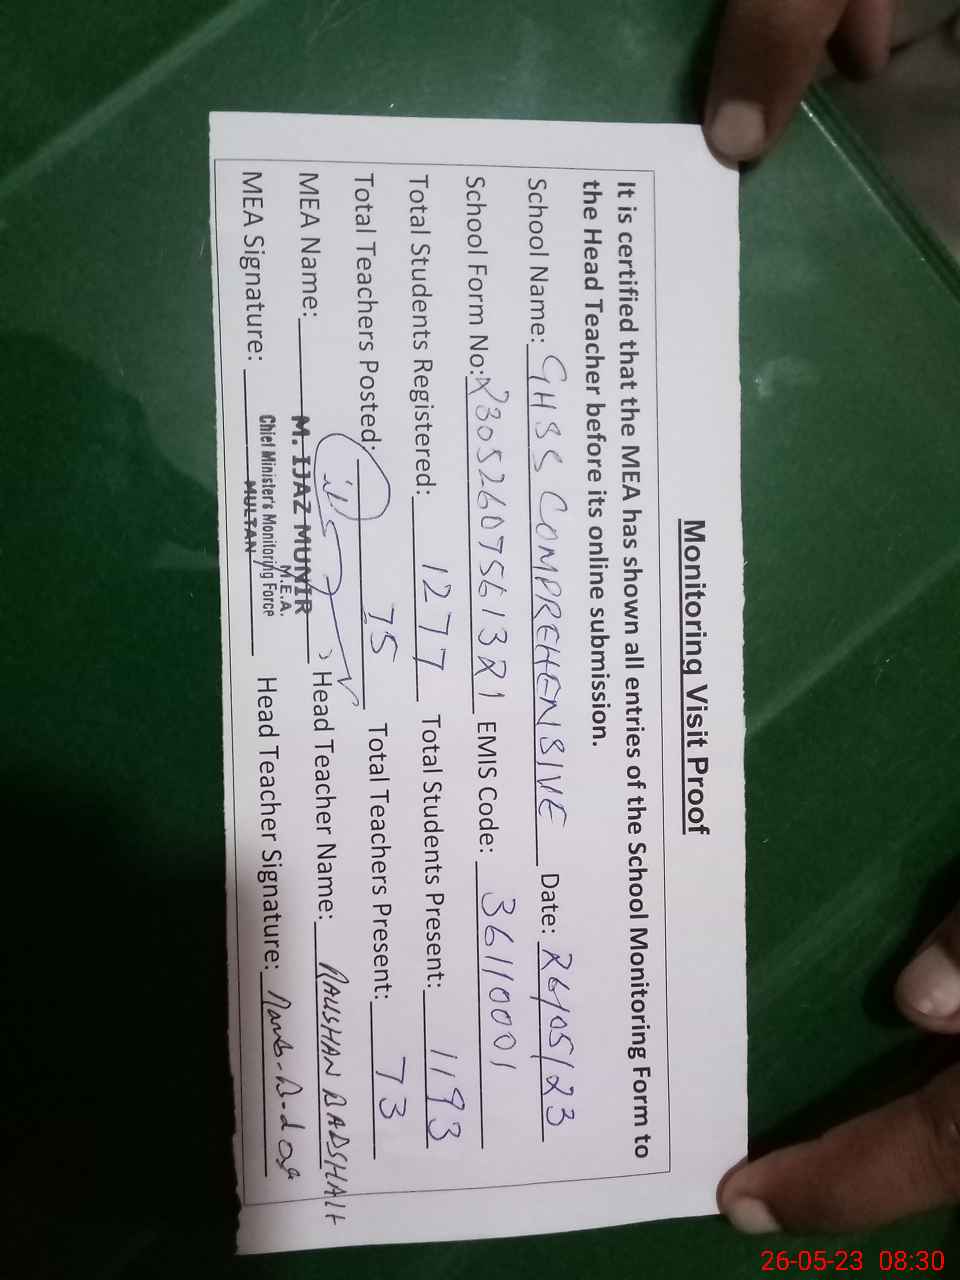 Monitoring Visit Proof
It is certified that the MEA has shown all entries of the School Monitoring Form to
the Head Teacher before its online submission.
School Name: GHSS COMPREHENSIVE Date: 26/05/23
School Form No: 230526075613R1 EMIS Code: 36110001
Total Students Registered: 1277 Total Students Present: 1193
Total Teachers Posted: 75 Total Teachers Present: 73
MEA Name: M. IJAZ MUNIR Head Teacher Name: RAUSHAN BADSHAH
M.E.A.
Chief Minister's Monitoring Force
MEA Signature: MULTAN Head Teacher Signature:
26-05-23 08:30